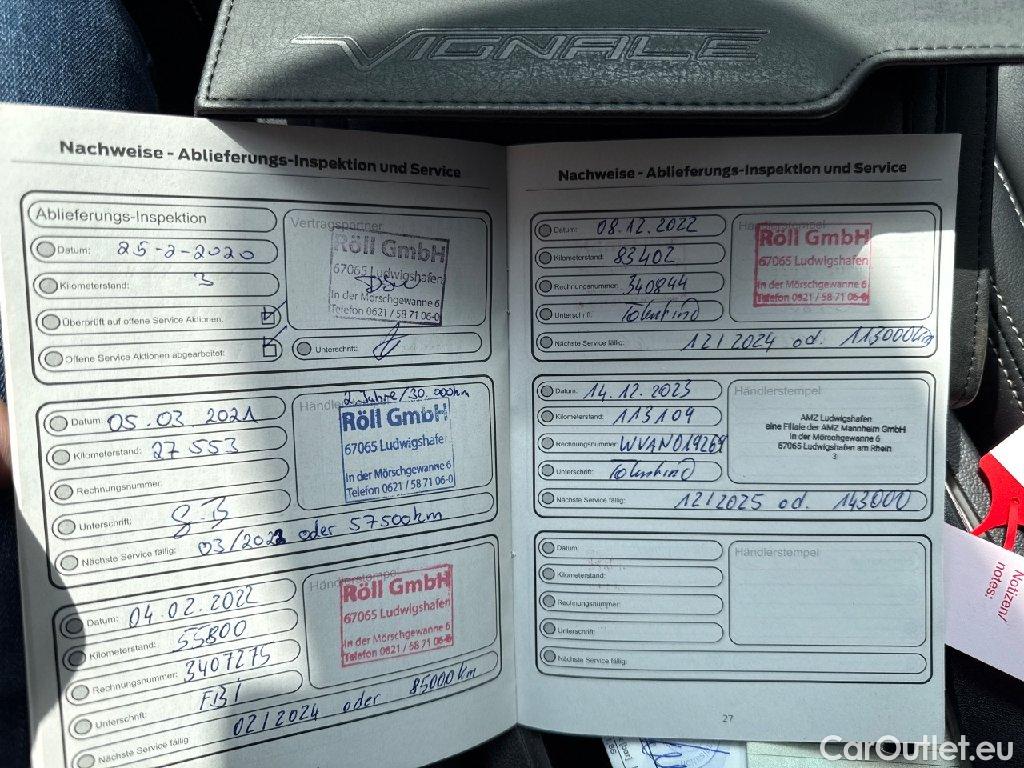 VIGNALE
Nachweise - Ablieferungs-Inspektion und Service
Ablieferungs-Inspektion
Datum: 25-2-2020
Kilometerstand: 3
Überprüft auf offene Service Aktionen:
Offene Service Aktionen abgearbeitet:
Vertragspartner
Röll GmbH
67065 Ludwigshafen
In der Mörschgewanne 6
Telefon 0621 / 58 71 06-0
Unterschrift:
Datum: 05.03 2021
Kilometerstand: 27 553
Rechnungsnummer:
Unterschrift:
Nächste Service fällig: 03/2022 oder 57500km
2 Jahre/30.000km
Röll GmbH
67065 Ludwigshafe
In der Mörschgewanne 6
Telefon 0621 / 58 71 06-0
Datum: 04.02.2022
Kilometerstand: 55800
Rechnungsnummer: 3407275
Unterschrift:
Nächste Service fällig: 02/2024 oder 85000km
Händlerstempel
Röll GmbH
67065 Ludwigshafen
In der Mörschgewanne 6
Telefon 0621 / 58 71 06-0
Nachweise - Ablieferungs-Inspektion und Service
Datum: 08.12.2022
Kilometerstand: 83402
Rechnungsnummer: 340844
Unterschrift:
Nächste Service fällig: 12/2024 od. 113000km
Röll GmbH
67065 Ludwigshafen
In der Mörschgewanne 6
Telefon 0621 / 58 71 06-0
Datum: 14.12.2023
Kilometerstand: 113109
Rechnungsnummer: WVAND19269
Unterschrift:
Nächste Service fällig: 12/2025 od. 143000
Händlerstempel
AMZ Ludwigshafen
eine Filiale der AMZ Mannheim GmbH
In der Mörschgewanne 6
67065 Ludwigshafen am Rhein
3
Datum:
Kilometerstand:
Rechnungsnummer:
Unterschrift:
Nächste Service fällig:
Händlerstempel
27
Notizen/
notes:
CarOutlet.eu